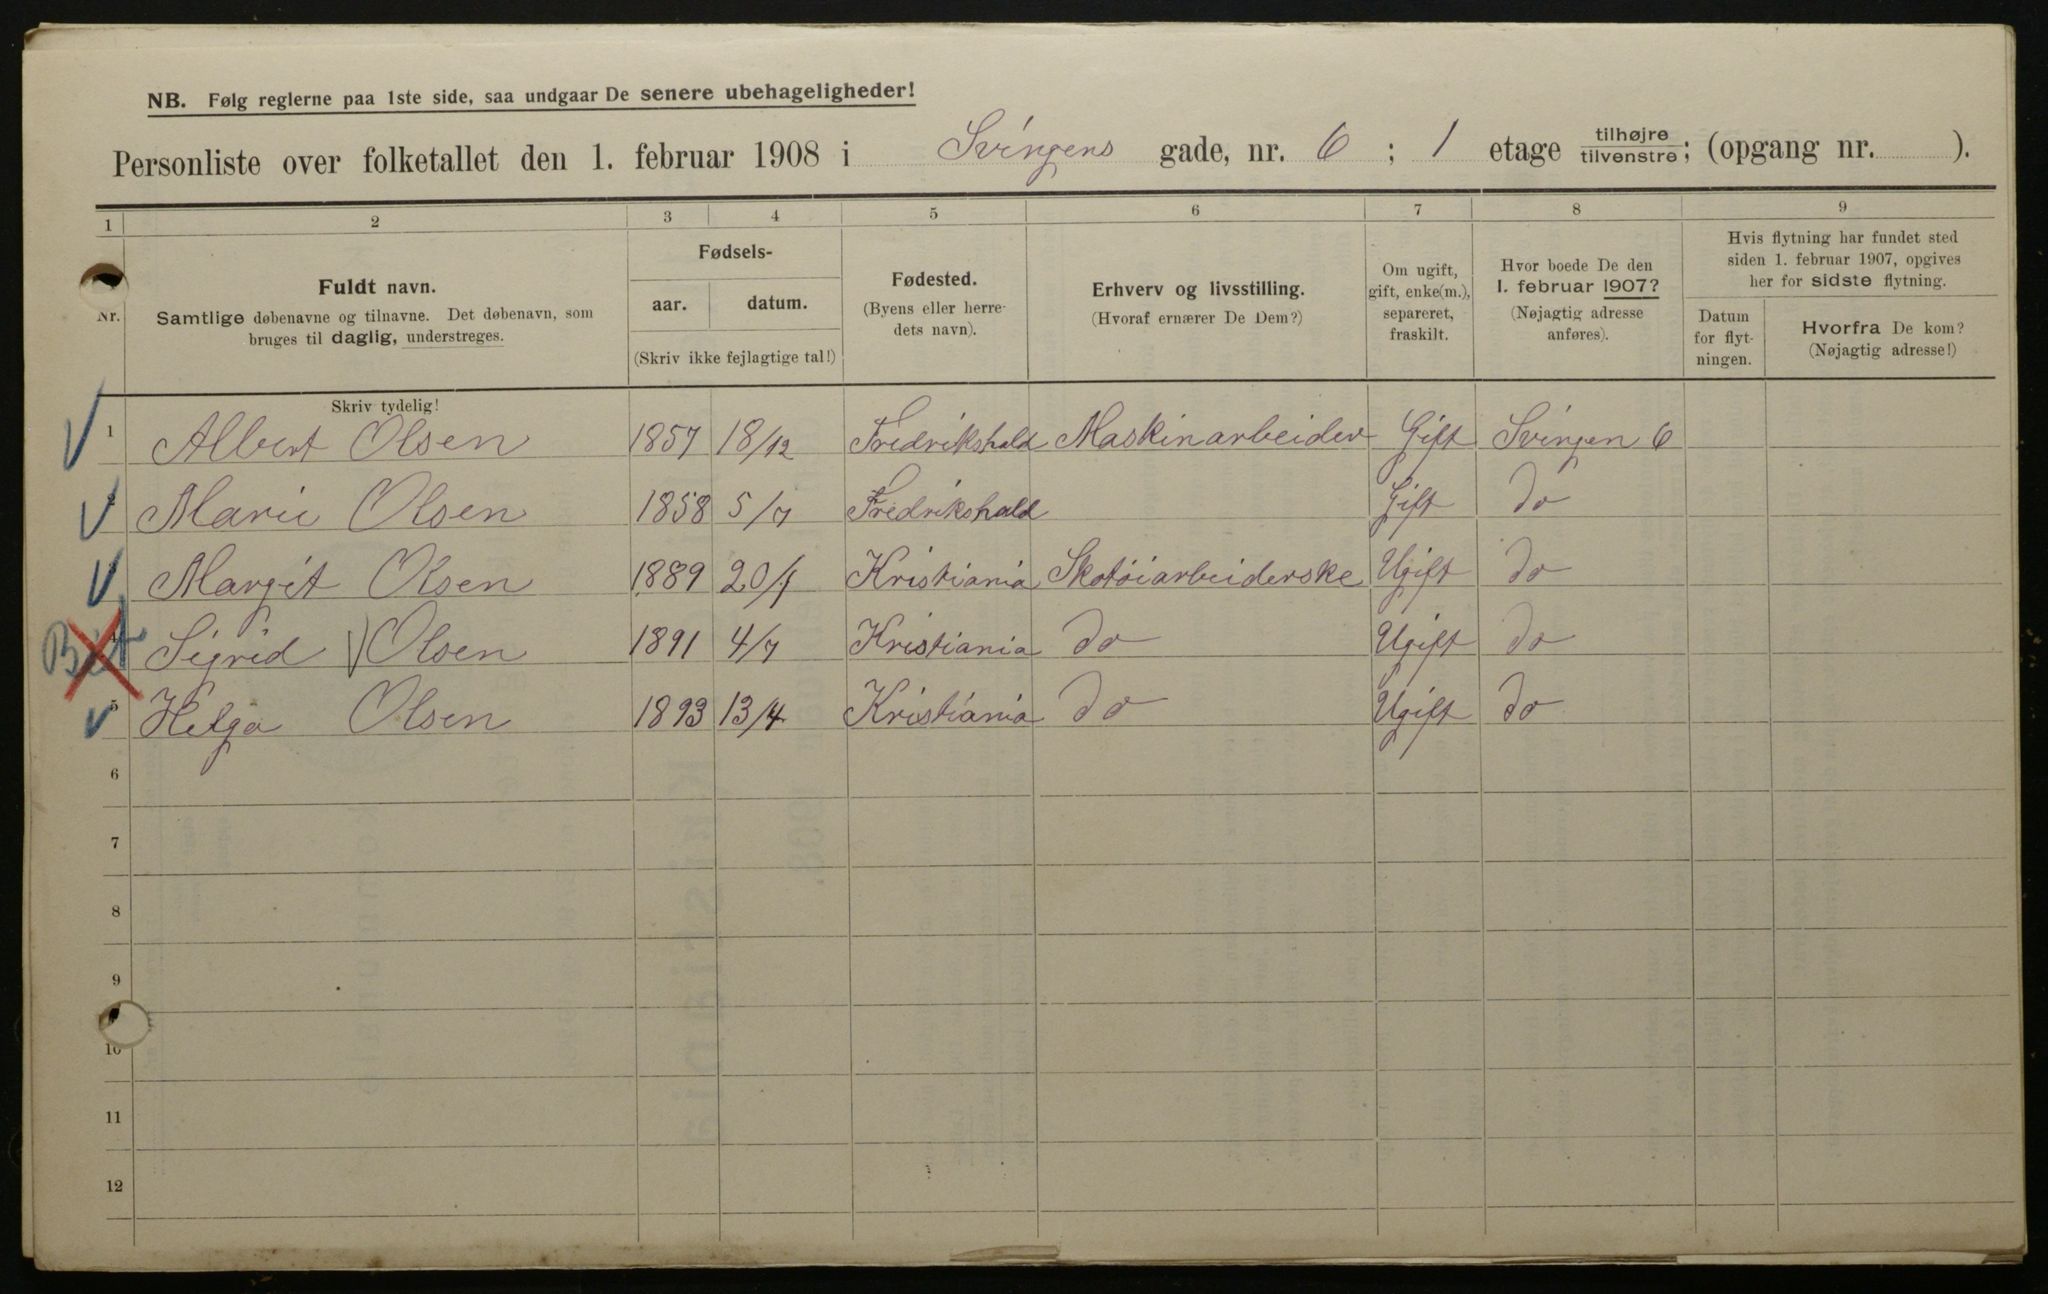 NB. Følg reglerne paa 1ste side, saa undgaar De senere ubehageligheder!
Personliste over folketallet den 1. februar 1908 i Svingens gade, nr. 6 ; 1 etage tilhøjre/tilvenstre; (opgang nr. ).
1 2 3 4 5 6 7 8 9
Nr.
Fuldt navn.
Samtlige døbenavne og tilnavne. Det døbenavn, som
bruges til daglig, understreges.
Fødsels-
aar. datum.
(Skriv ikke fejlagtige tal!)
Fødested.
(Byens eller herre-
dets navn).
Erhverv og livsstilling.
(Hvoraf ernærer De Dem?)
Om ugift,
gift, enke(m.),
separeret,
fraskilt.
Hvor boede De den
1. februar 1907?
(Nøjagtig adresse
anføres).
Hvis flytning har fundet sted
siden 1. februar 1907, opgives
her for sidste flytning.
Datum
for flyt-
ningen.
Hvorfra De kom?
(Nøjagtig adresse!)
Skriv tydelig!
1 Albert Olsen 1857 18/12 Fredrikshald Maskinarbeider Gift Svingen 6
2 Marie Olsen 1858 5/7 Fredrikshald Gift do
Margit Olsen 1889 20/1 Kristiania Skotöiarbeiderske Ugift do
4 Sigrid Olsen 1891 4/7 Kristiania do Ugift do
5 Helga Olsen 1893 13/4 Kristiania do Ugift do
6
7
8
9
10
11
12